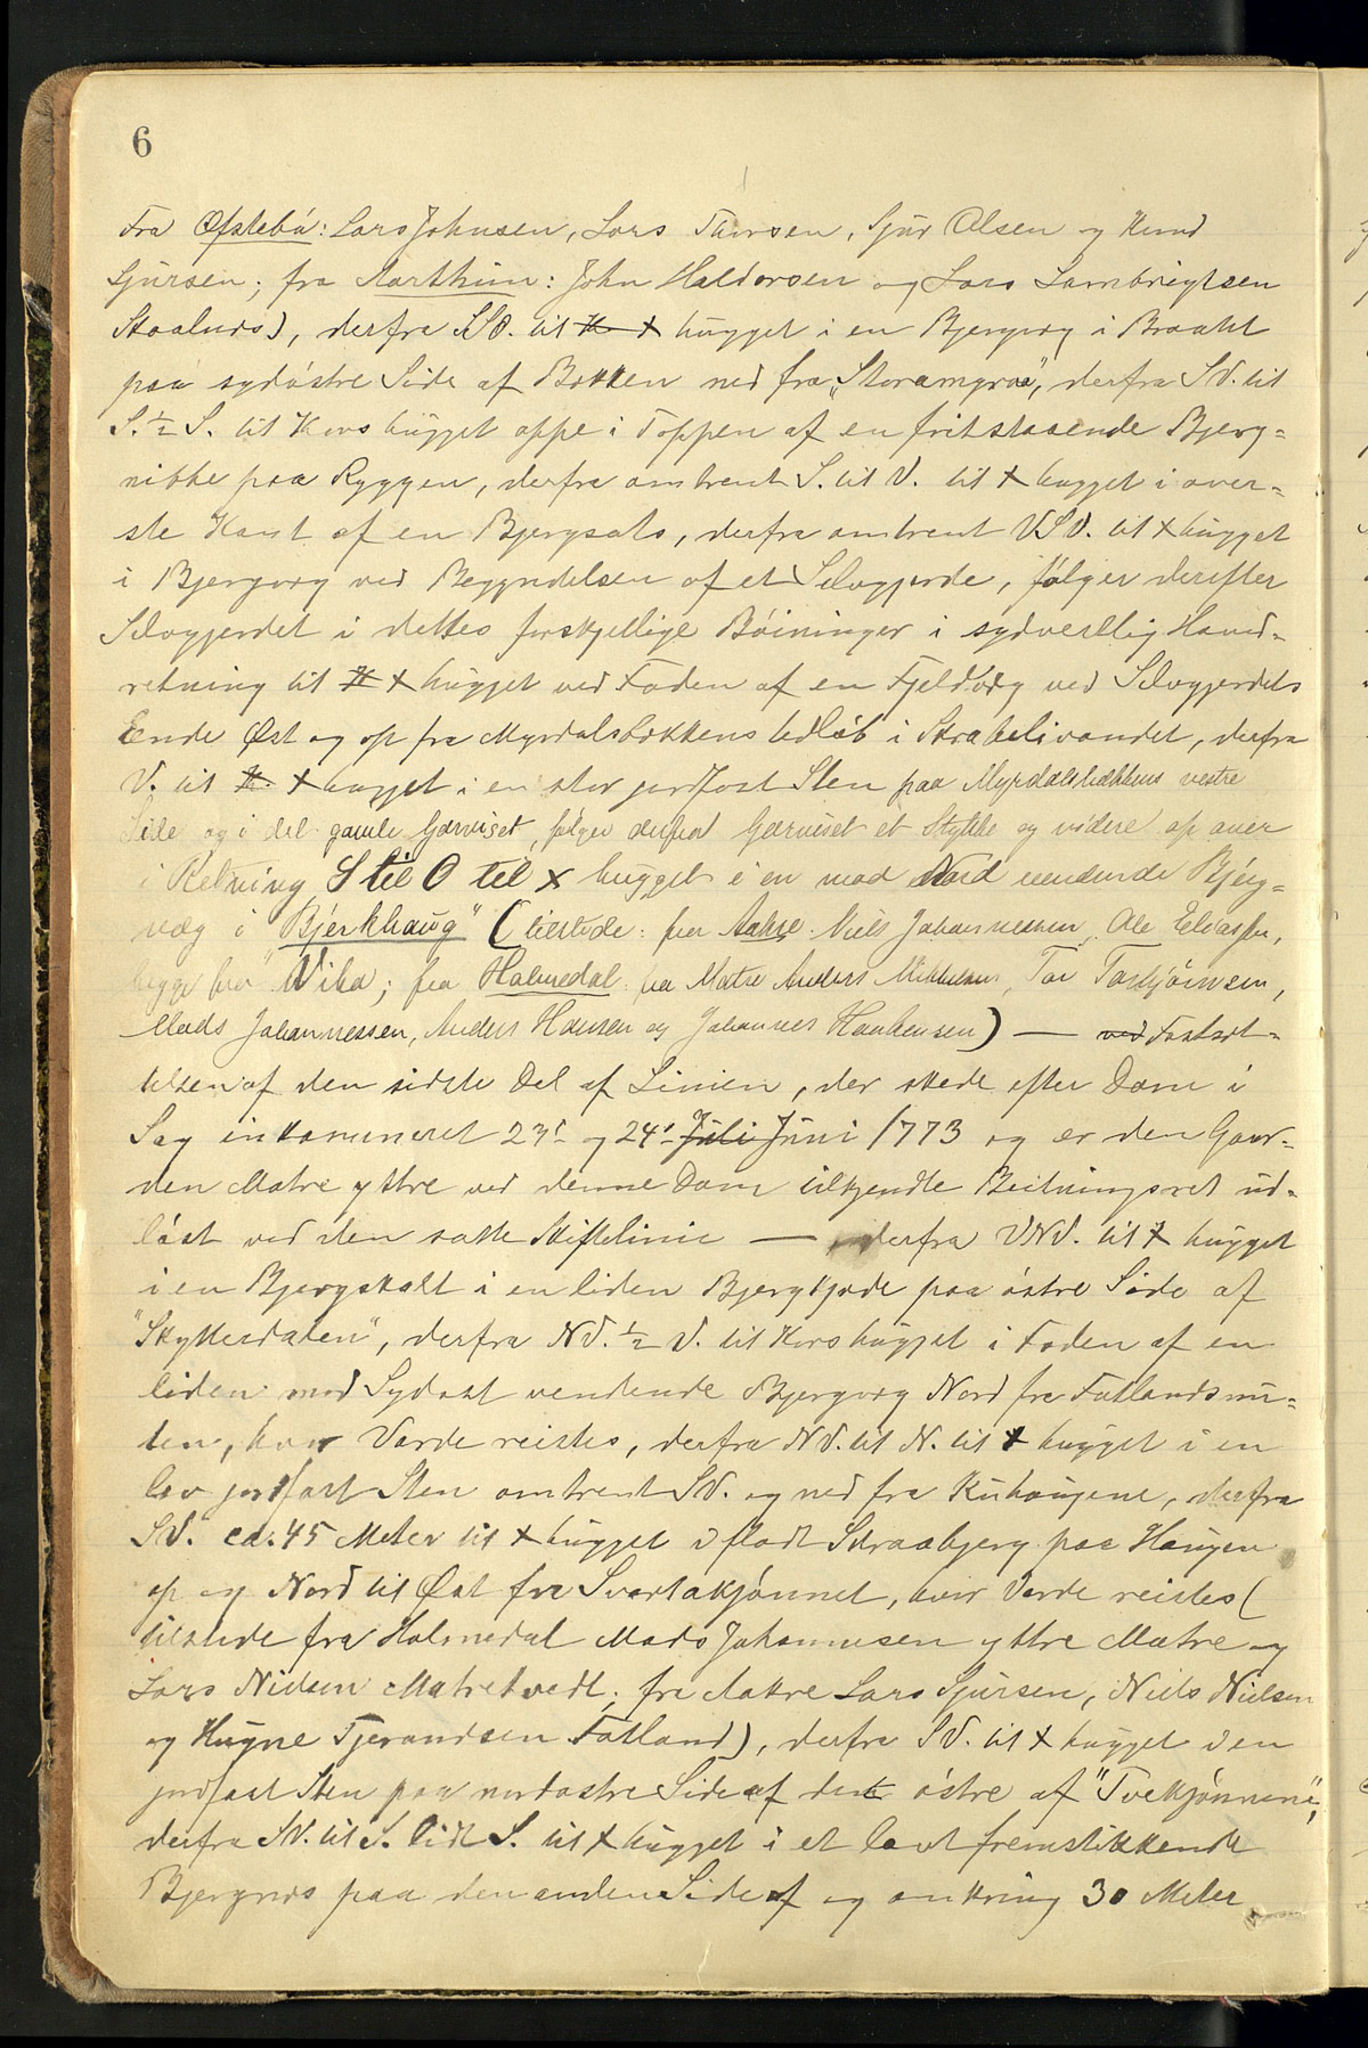 6
Fra Øfstebö: Lars Johnsen, Lars Thorsen, Sjur Olsen og Knud
Sjursen; fra Aarthun: John Haldorsen og Lars Lambrigtsen
Staalnæs), derfra SSO. til K + hugget i en Bjergvæg i Braatet
paa sydöstre Side af Bækken ned fra „Storamyraa", derfra SV. til
S. ½ S. til Kors hugget oppe i Toppen af en fritstaaende Bjerg=
nibbe paa Ryggen, derfra omtrent S. til V. til + hugget i över=
ste Kant af en Bjergsats, derfra omtrent VSV. til + hugget
i Bjergvæg ved Begyndelsen af et Selvgjerde, fölger derefter
Selvgjerdet i dettes forskjellige Böininger i sydvestlig Hoved=
retning til K + hugget ved Foden af en Fjeldvæg ved Selvgjerdets
Ende Øst og op fra Myrdalsbækkens Udlöb i Strabelivandet, derfra
V. til K. + hugget i en stor jordfast Sten paa Myrdalsbækkens vestre
Side og i det gamle Gjerdiset, fölger derfra Gjerdeset et Stykke og videre op over
i Retning S til O til x hugget i en mod Nord vendende Bjerg=
væg i "Bjerkhaug" (tilstede: fra Aakre Niels Johannessen, Ole Eliassen,
begge fra Vika; fra Holmedal fra Matre Anders Mikkelsen, Tor Torbjörnsen,
Mads Johannessen, Anders Hansen og Johannes Haakensen) — ved Fastsæt=
telsen af den sidste Del af Linien, der skede efter Dom i
Sag inkamineret 23de og 24de Juli Juni 1773 og er den Gaar=
den Matre yttre ved denne Dom tilkjendte Beitningsret ud=
löst ved den satte Skiftelinie — derfra VNV. til + hugget
i en Bjergskalt i en liden Bjergkjæde paa östre Side af
"Skytterdalen", derfra NV. ½ V. til Kors hugget i Foden af en
liden mod Sydost vendende Bjergvæg Nord fra Fatlandsnu=
ten, hvor Varde reistes, derfra NV. til N. til + hugget i en
lav jordfast Sten omtrent SV. og ned fra Kuhaugene, derfra
SV. ca. 45 Meter til + hugget i fladt Skraabjerg paa Haugen
op og Nord til Øst fra Svartakjönnet, hvor Varde reistes (
tilstede fra Holmedal Mads Johannesen yttre Matre og
Lars Nilsen Matretvedt; fra Aakre Lars Sjursen, Niels Nielsen
og Hugne Tjerandsen Fatland), derfra SV. til + hugget i en
jordfast Sten paa nordöstre Side af det östre af "Tvekjönnene",
derfra SV. til S. lidt S. til + hugget i et lavt fremstikkende
Bjergnæs paa den anden Side af og omkring 30 Meter